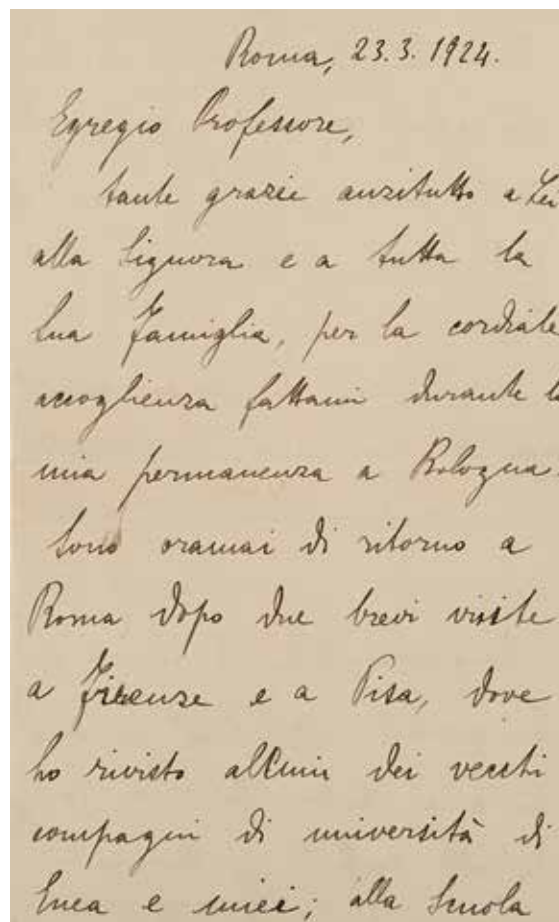 Roma, 23.3.1924.
Egregio Professore,
tante grazie anzitutto a Lei
alla Signora e a tutta la
Sua famiglia, per la cordiale
accoglienza fattami durante la
mia permanenza a Bologna.
Sono oramai di ritorno a
Roma dopo due brevi visite
a Firenze e a Pisa, dove
ho rivisto alcuni dei vecchi
compagni di università di
Enea e miei; alla Scuola